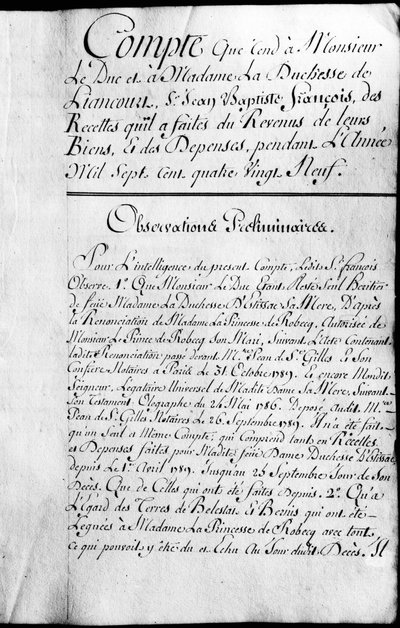 Compte Que Rend à Monsieur
Le Duc et à Madame La Duchesse de
Liancourt, Sr. Jean Baptiste François, des
Recettes qu'il a faites du Revenus de leurs
Biens, Et des Depenses, pendant L'Année
Mil Sept Cent quatre Vingt Neuf.
Observations Preliminaires.
Pour L'intelligence du present Compte, Ledit Sr. François
Observe. 1º. Que Monsieur Le Duc Etant Resté Seul Heritier
de feüe Madame La Duchesse D'Estissac Sa Mere, D'après
la Renonciation de Madame La Princesse de Robecq, Autorisée de
Monsieur Le Prince de Robecq Son Mari, Suivant L'acte Contenant
ladite Renonciation passé devant Me. Jean de St. Gilles Et Son
Confrere Notaires à Paris le 31 Octobre 1789. Et encore Mondit
Seigneur, Légataire Universel de Madite Dame Sa Mere, Suivant
Son Testament Olographe du 24 Mai 1786. Deposé Audit Me.
Jean de St. Gilles Notaires le 26 Septembre 1789. Il n'a été fait
qu'un Seul et Même Compte, qui Comprend tant en Recettes
et Depenses faites pour Madite feüe Dame Duchesse D'Estissac,
depuis Le 1er. Avril 1789. Jusqu'au 25 Septembre Jour de Son
Decès. Que de Celles qui ont été faites Depuis. 2º. Qu'a
L'Egard des Terres de Belestat Et Bernis qui ont été
Leguées à Madame La Princesse de Robecq avec tout
ce qui pouvoit y être du et Echu Au Jour dudit Decès. Il